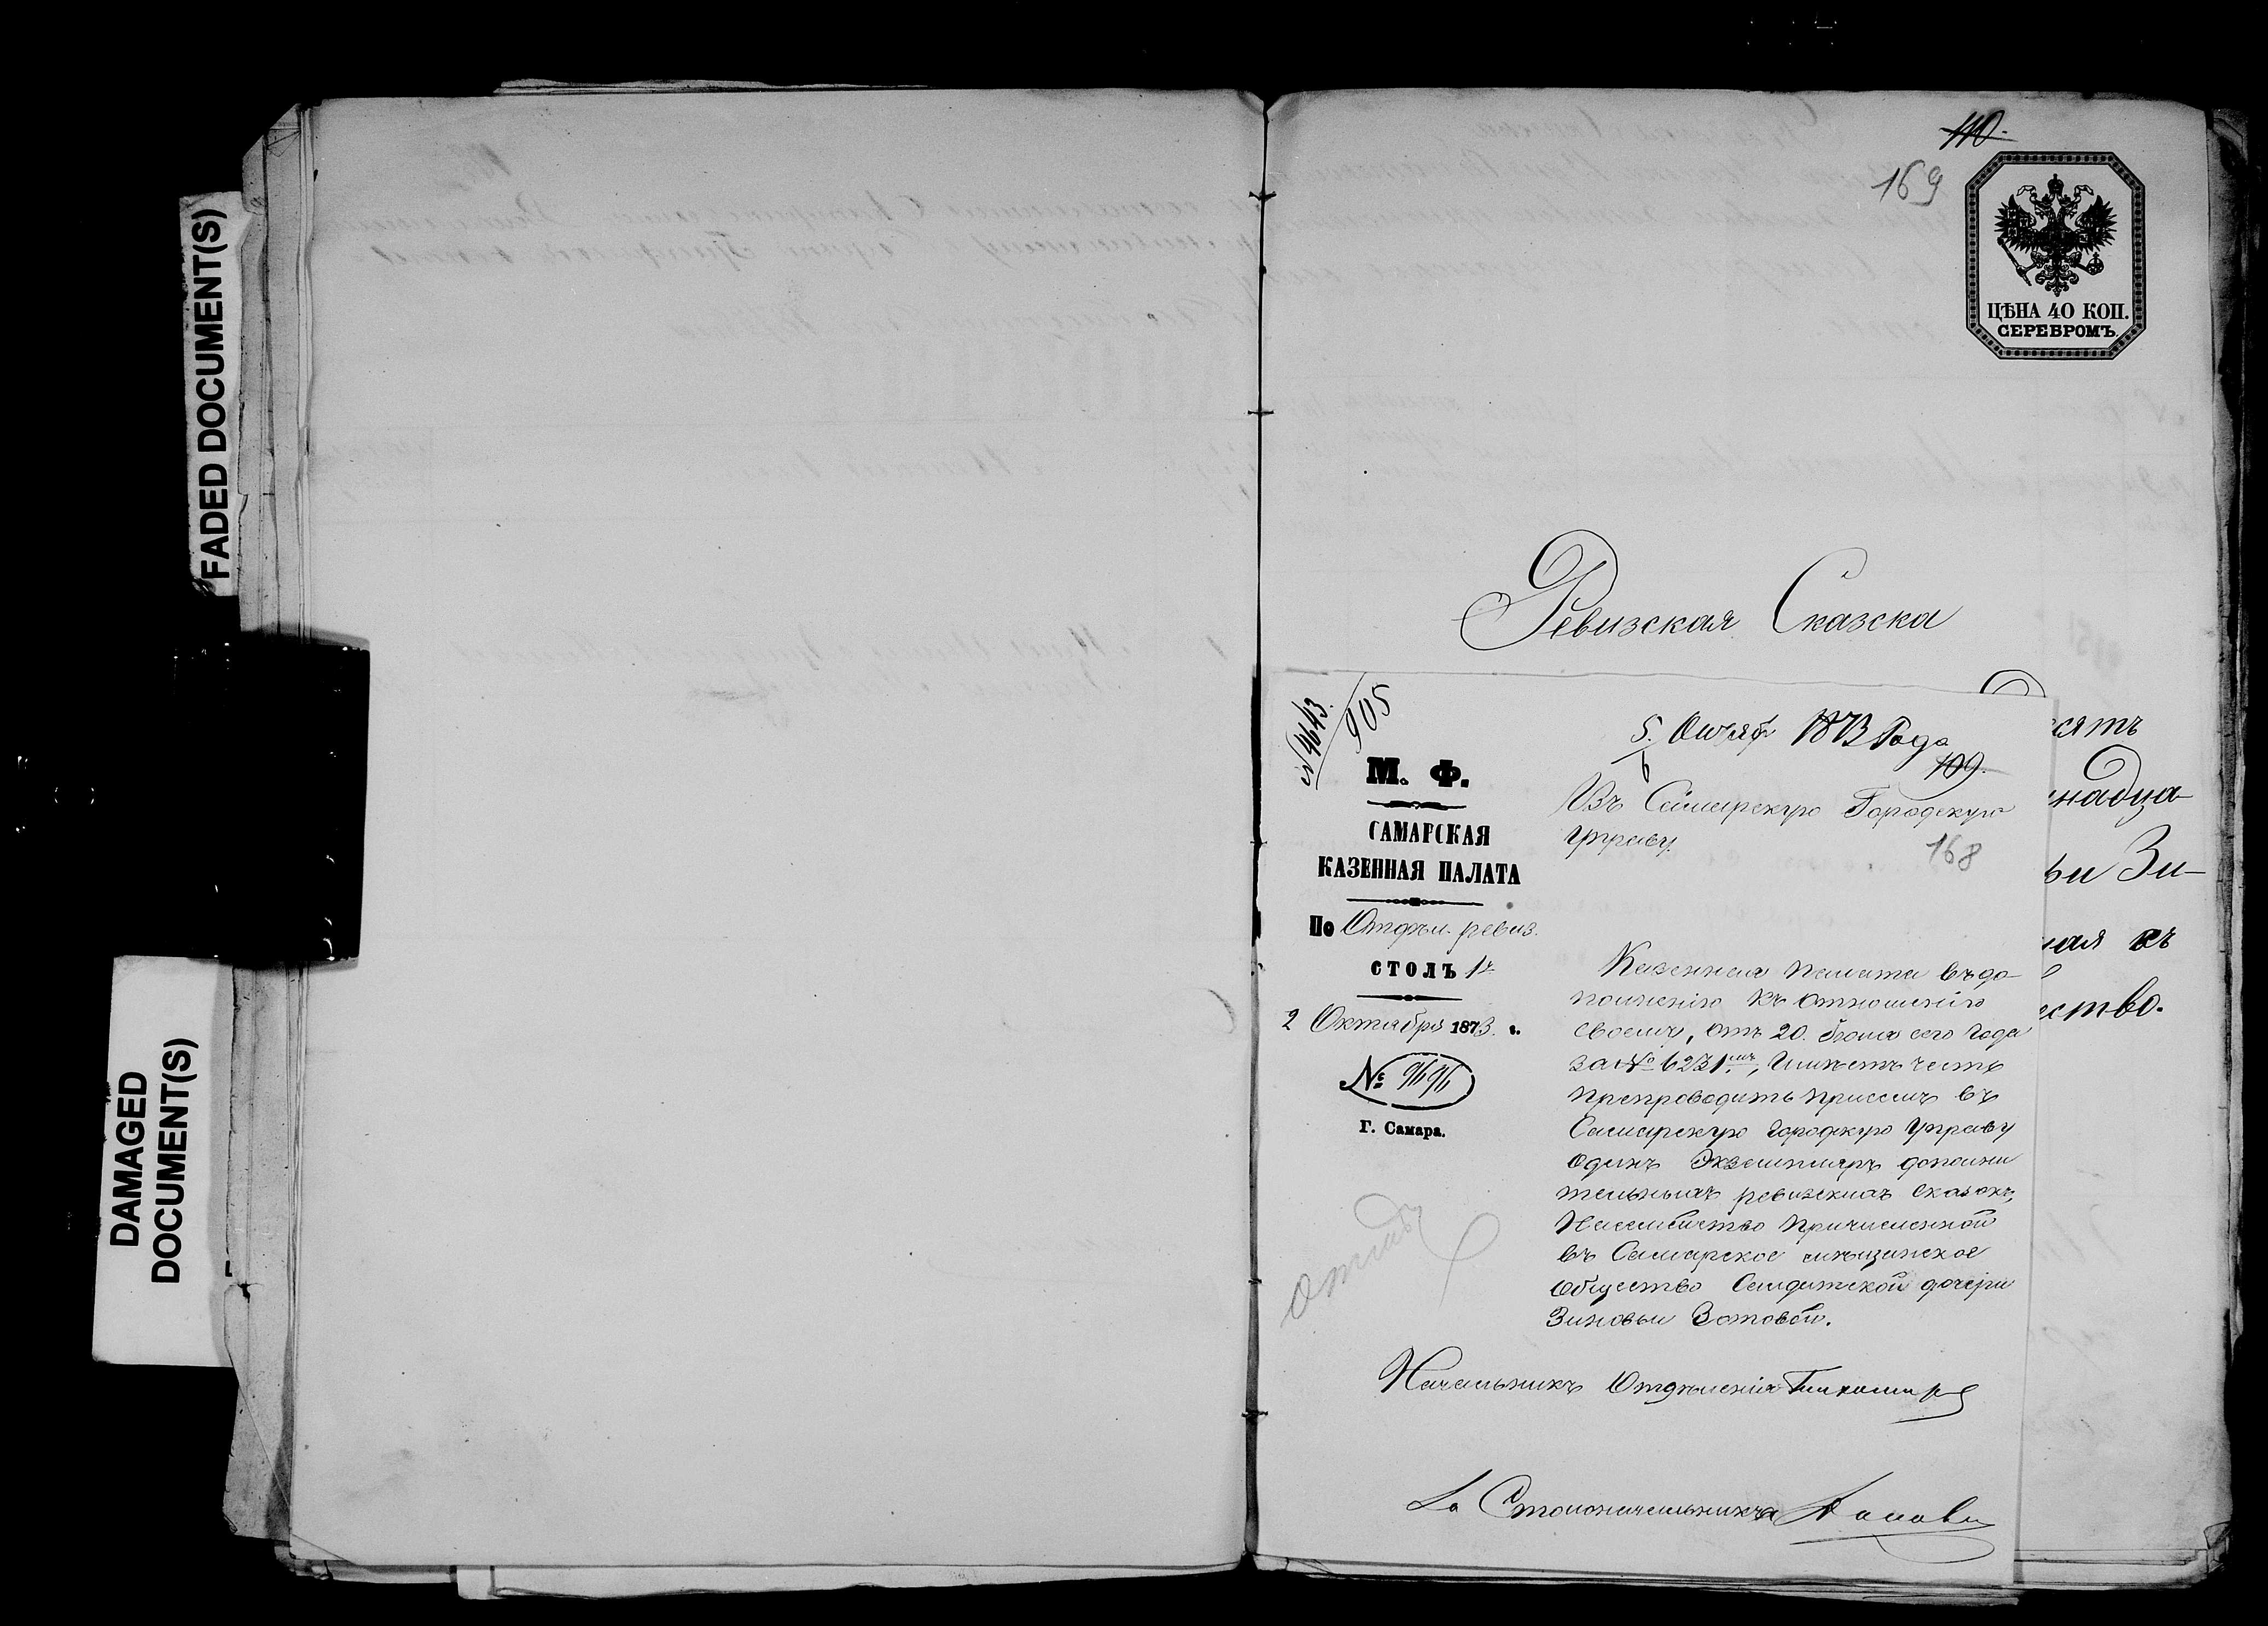 FADED DOCUMENT(S)
DAMAGED
DOCUMENT(S)
110.
169
ЦѢНА 40 КОП.
СЕРЕБРОМЪ.
Ревизская Сказка
сятъ
надца
ьи Зи-
ная въ
ество.
№ 4643.
905
5. Октяб 1873 Года
6
109.
М. Ф.
САМАРСКАЯ
КАЗЕННАЯ ПАЛАТА
По Отдѣл. ревиз.
СТОЛЪ 1й
2 Октября 1873 г.
№ 9696
Г. Самара.
Въ Самарскую Городскую
Управу.
168
Казенная Палата въ до-
полненіе къ отношенію
своему, отъ 20. Іюля сего года
за № 6231мъ, Имѣетъ честь
препроводить при семъ въ
Самарскую городскую Управу
Одинъ Экземпляръ дополни
тельныхъ ревизскихъ сказокъ,
причисленной
въ Самарское мѣщанское
Общество Солдатской дочери
Зиновьи Зотовой.
Начальникъ Отдѣленія Тихомиров
За Столоначальника